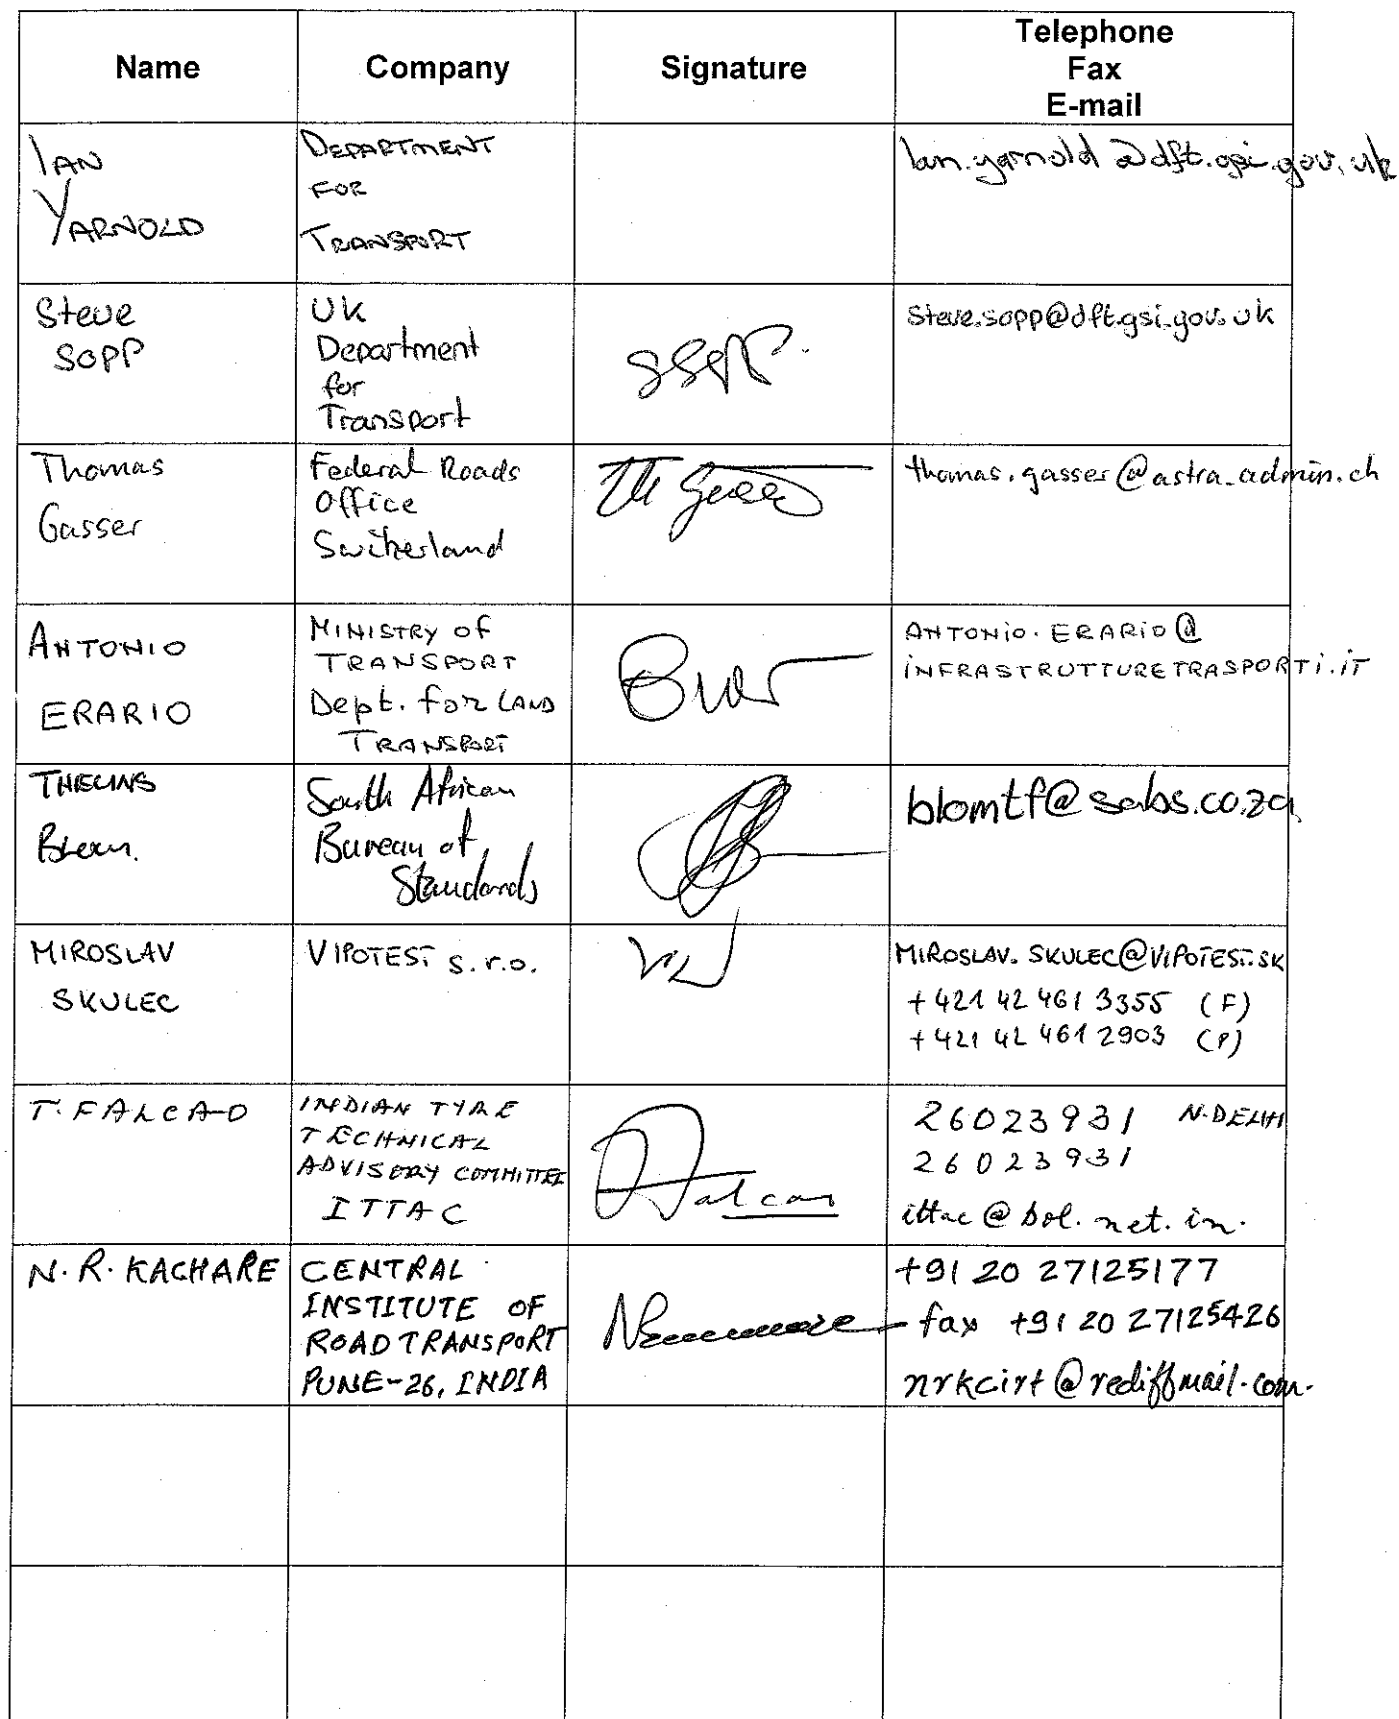 Name
Company
Signature
Telephone
Fax
E-mail
IAN
YARNOLD
DEPARTMENT
FOR
TRANSPORT
Ian.yarnold@dft.gsi.gov.uk
Steve
SOPP
UK
Department
for
Transport
SSopp
Steve.sopp@dft.gsi.gov.uk
Thomas
Gasser
Federal Roads
Office
Switzerland
thomas.gasser@astra.admin.ch
ANTONIO
ERARIO
MINISTRY OF
TRANSPORT
Dept. for LAND
TRANSPORT
ANTONIO.ERARIO@
INFRASTRUTTURETRASPORTI.IT
THEUNS
Blom.
South African
Bureau of
Standards
blomtf@sabs.co.za
MIROSLAV
SKULEC
VIPOTEST s.r.o.
MIROSLAV.SKULEC@VIPOTEST.SK
+421 42 461 3355 (F)
+421 42 461 2903 (P)
T. FALCAO
INDIAN TYRE
TECHNICAL
ADVISORY COMMITTEE
ITTAC
Falcao
26023931 N.DELHI
26023931
ittac@bol.net.in.
N.R. KACHARE
CENTRAL
INSTITUTE OF
ROAD TRANSPORT
PUNE-26, INDIA
+91 20 27125177
fax +91 20 27125426
nrkcirt@rediffmail.com.